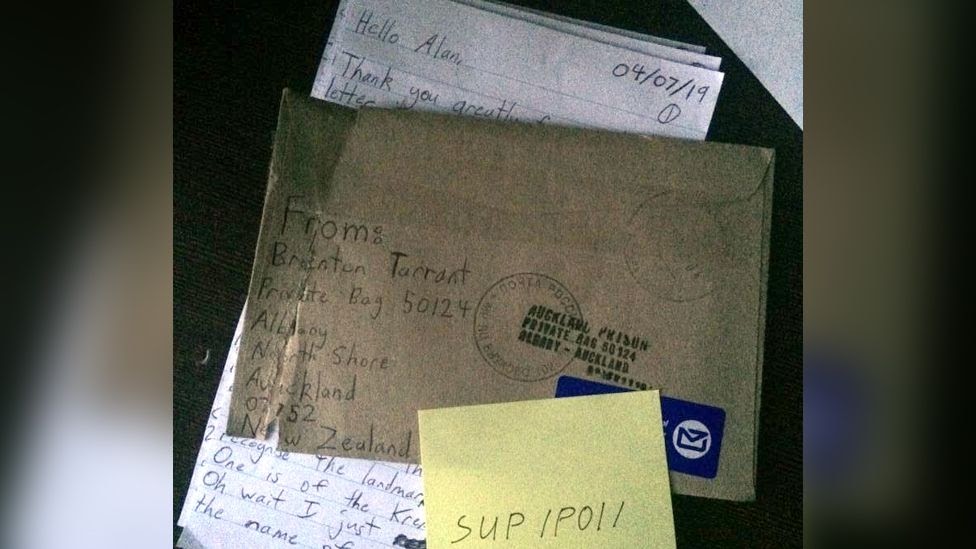 Hello Alan,
04/07/19
①
Thank you greatly
letter
From:
Brenton Tarrant
Private Bag 50124
Albany
North Shore
Auckland
0752
New Zealand
ПОЧТА РОССИИ
AUCKLAND PRISON
PRIVATE BAG 50124
ALBANY - AUCKLAND
recognise the landmar
One is of the Kre
Oh wait I just
the name of
SUP /POl/